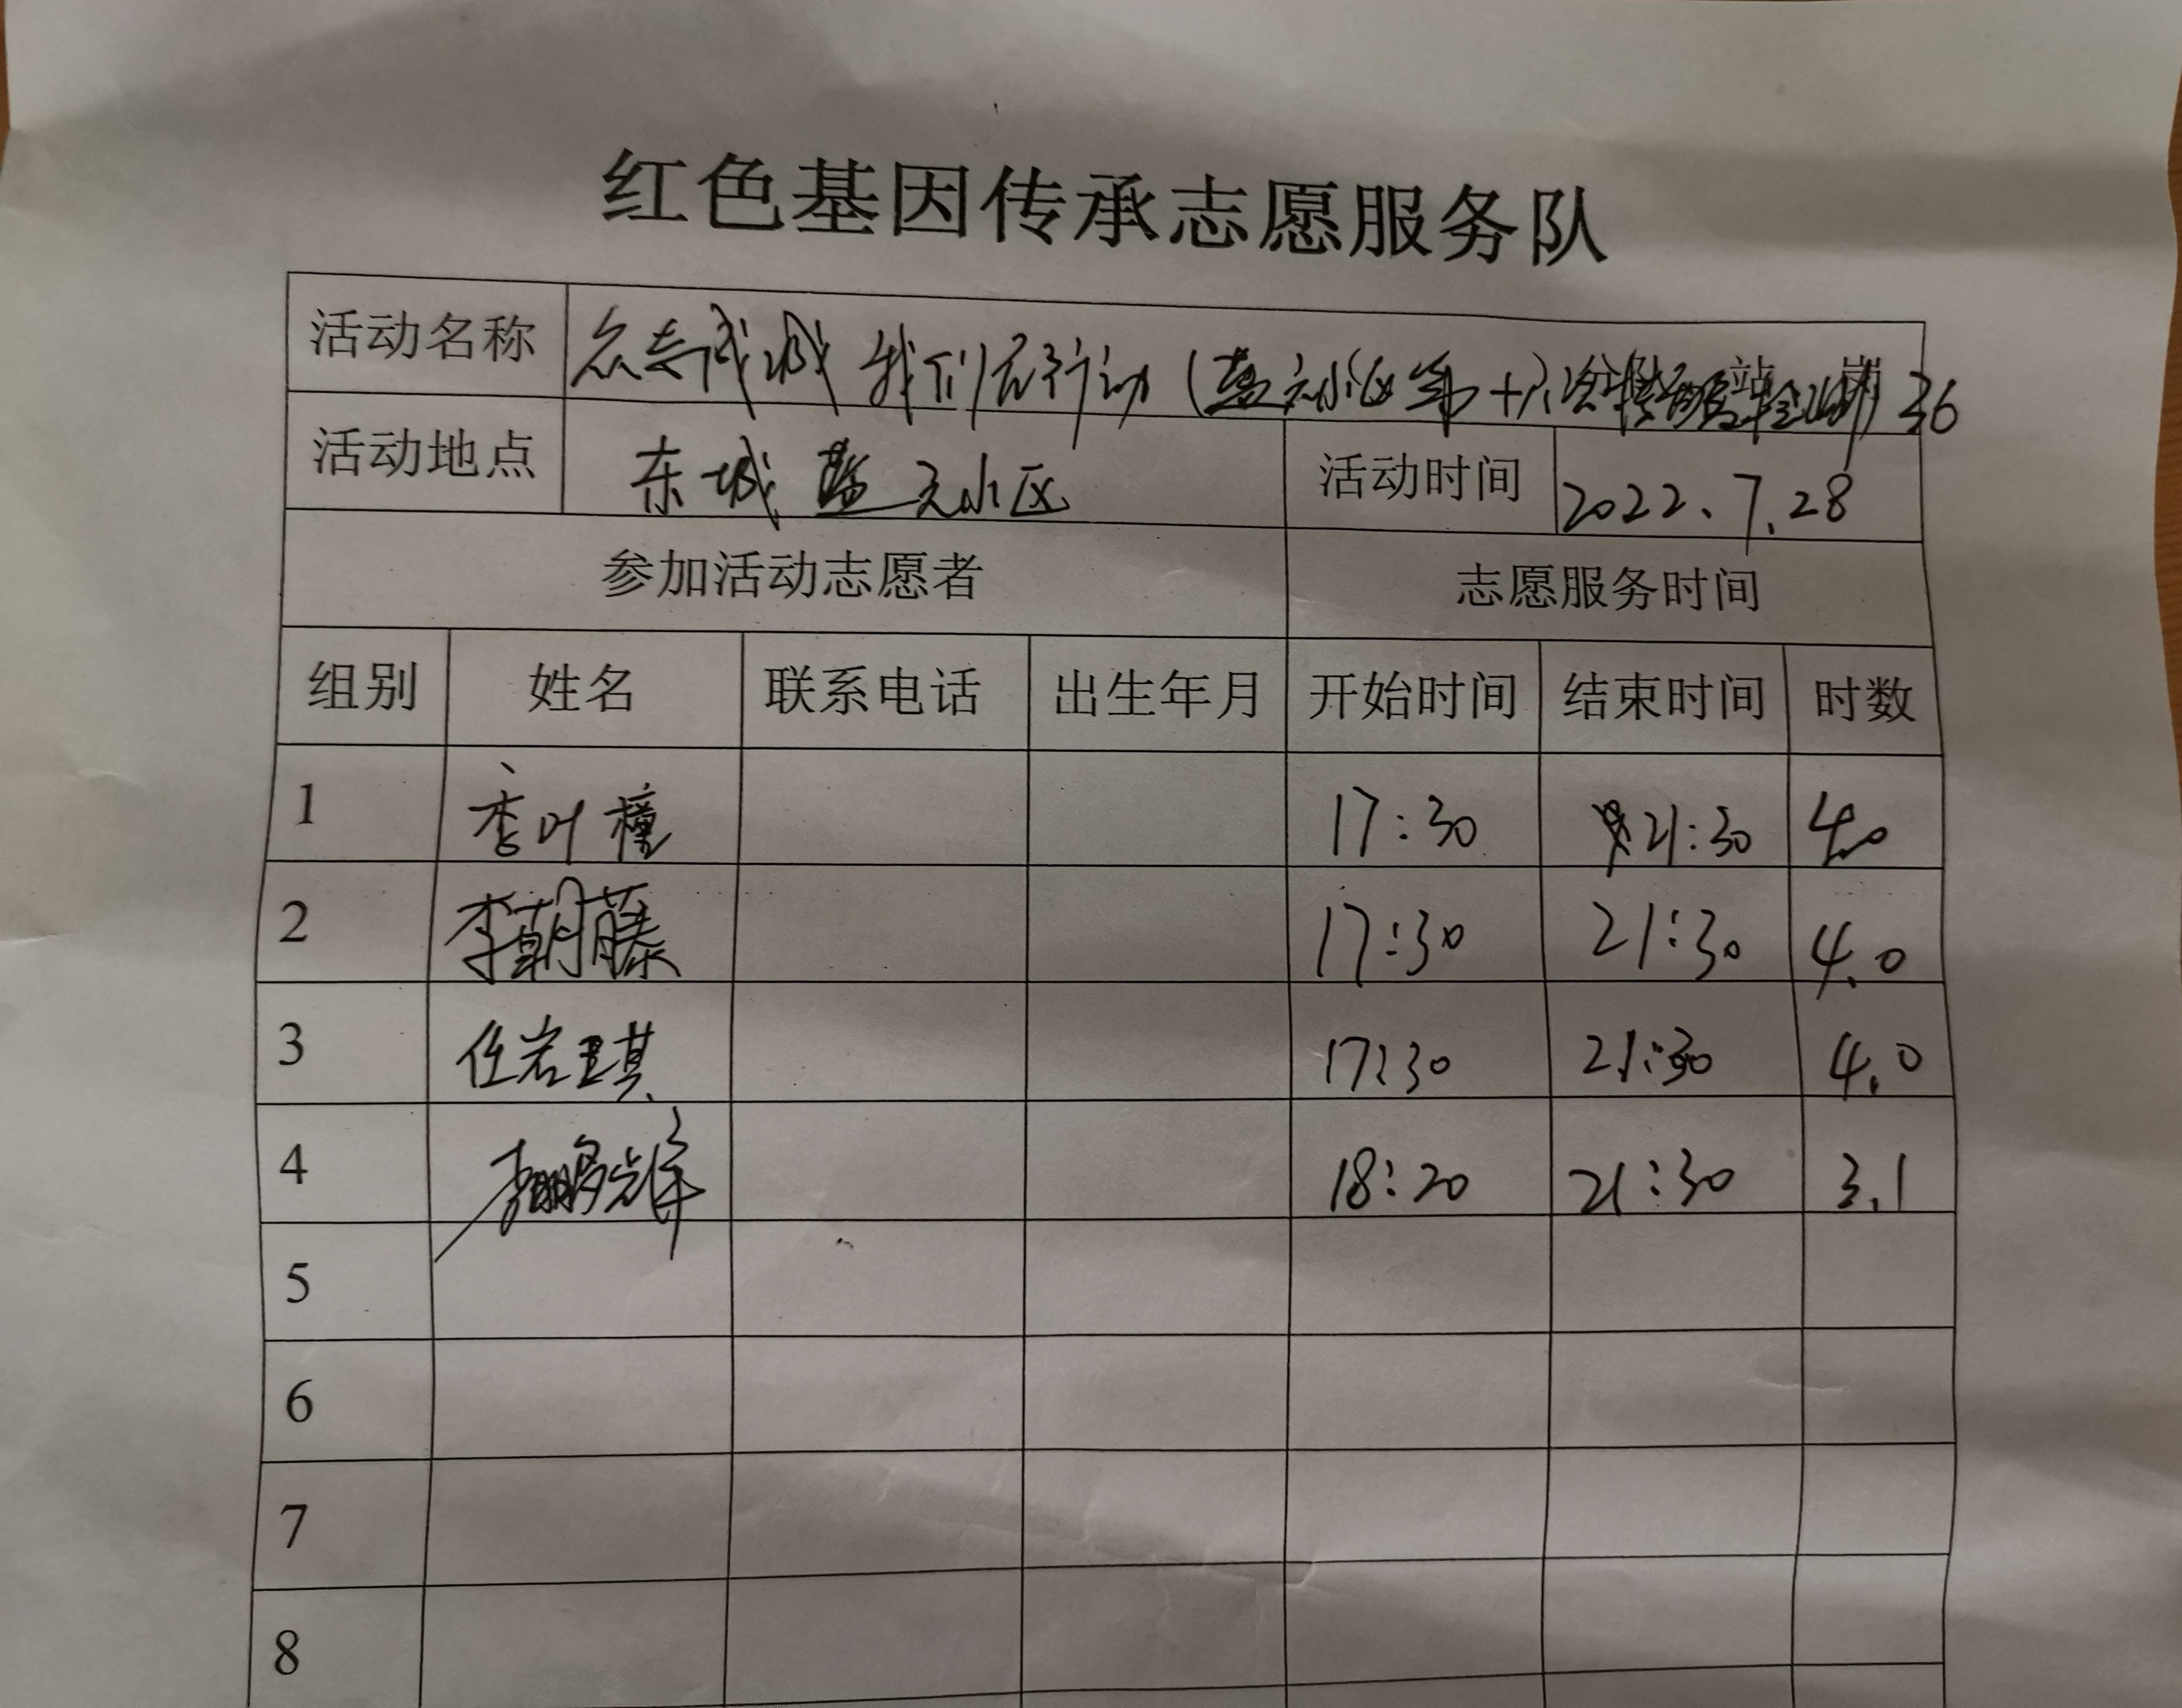 红色基因传承志愿服务队
活动名称 众志成城 我们在行动
活动地点 东城蓝天小区 活动时间 2022.7.28
参加活动志愿者 志愿服务时间
组别 姓名 联系电话 出生年月 开始时间 结束时间 时数
1 李叶檀 17:30 21:30 4.0
2 李朝藤 17:30 21:30 4.0
3 任岩琪 17:30 21:30 4.0
4 18:20 21:30 3.1
5
6
7
8